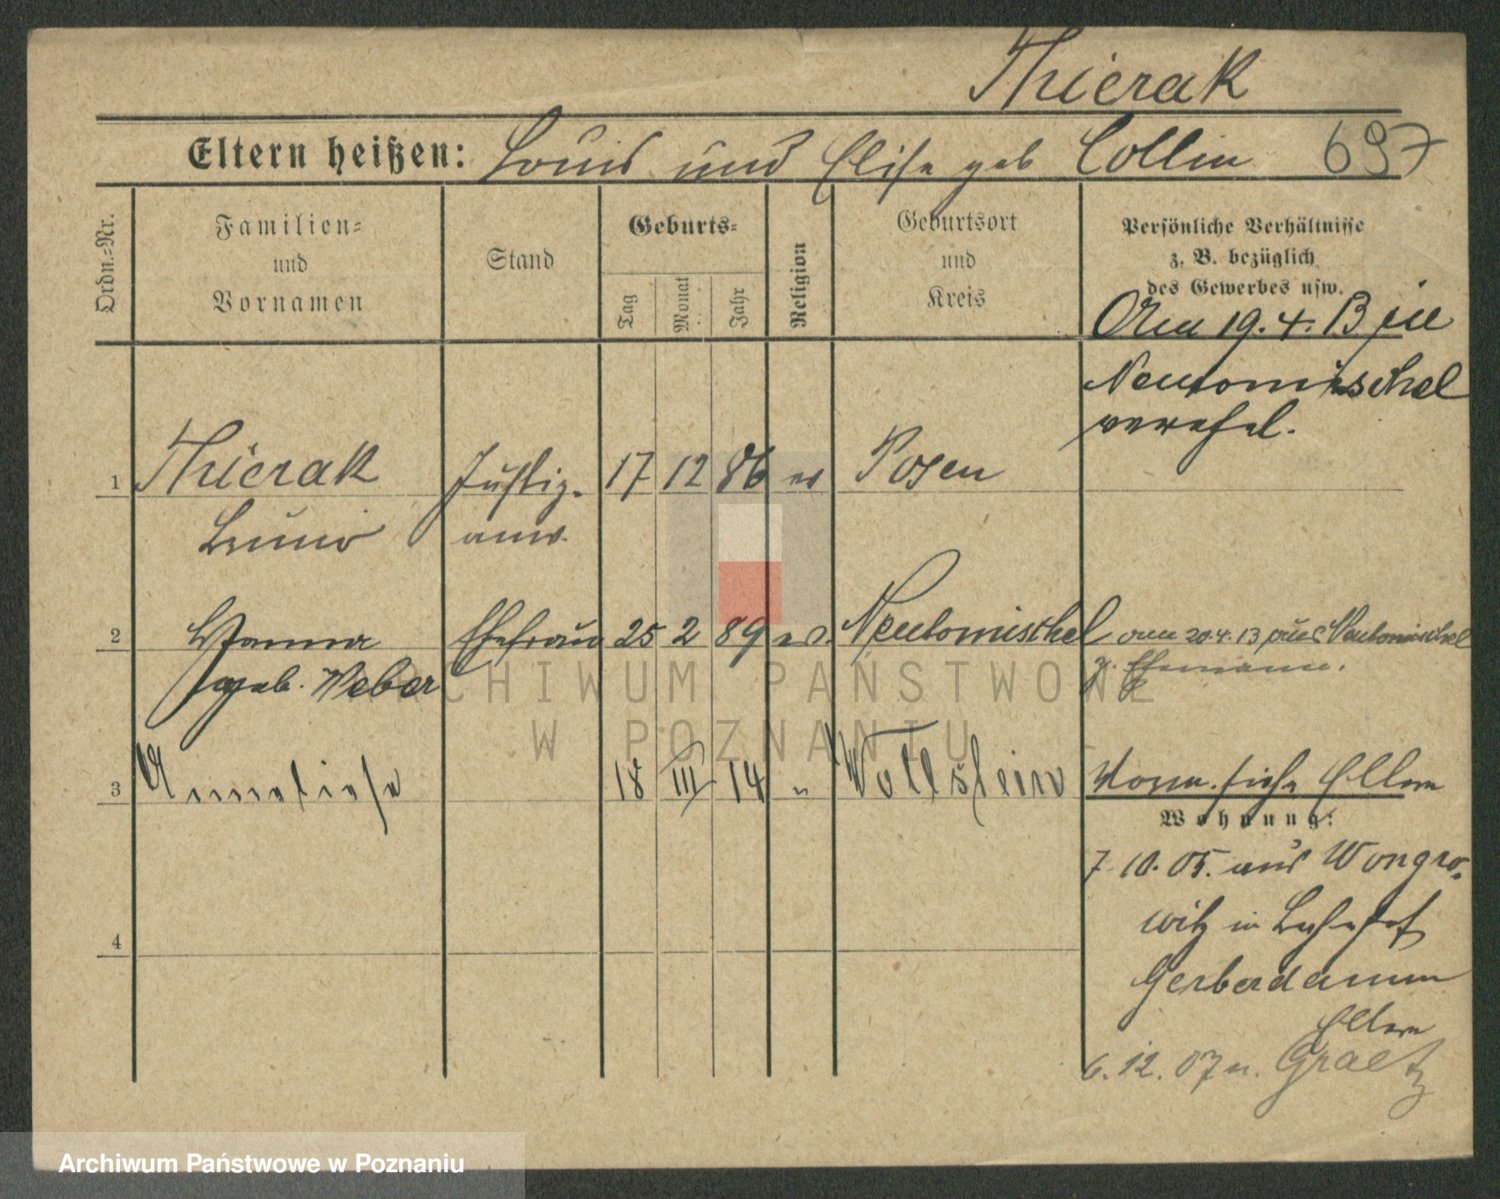 Thierak
Eltern heißen: Louis und Elise geb Collin 697
Ordn.-Nr.
Familien-
und
Vornamen
Stand
Geburts-
Tag
Monat
Jahr
Religion
Geburtsort
und
Kreis
Persönliche Verhältnisse
z. B. bezüglich
des Gewerbes usw.
Am 19.4.13 zu
Neutomischel
verehel.
1 Thierak Justiz- 17 12 86 ev Posen
Bruno anw.
2 Hanna Ehefrau 25 2 89 ev. Neutomischel am 20.4.13 aus Neutomischel
geb. Weber z. Ehemann.
3 Anneliese 18 III 14 " Wollstein Vorm. siehe Eltern
Wohnung:
7.10.05. aus Wongro-
witz in
Gerberdamm
Eltern
6.12.07 n. Graetz
4
ARCHIWUM PAŃSTWOWE
W POZNANIU
Archiwum Państwowe w Poznaniu